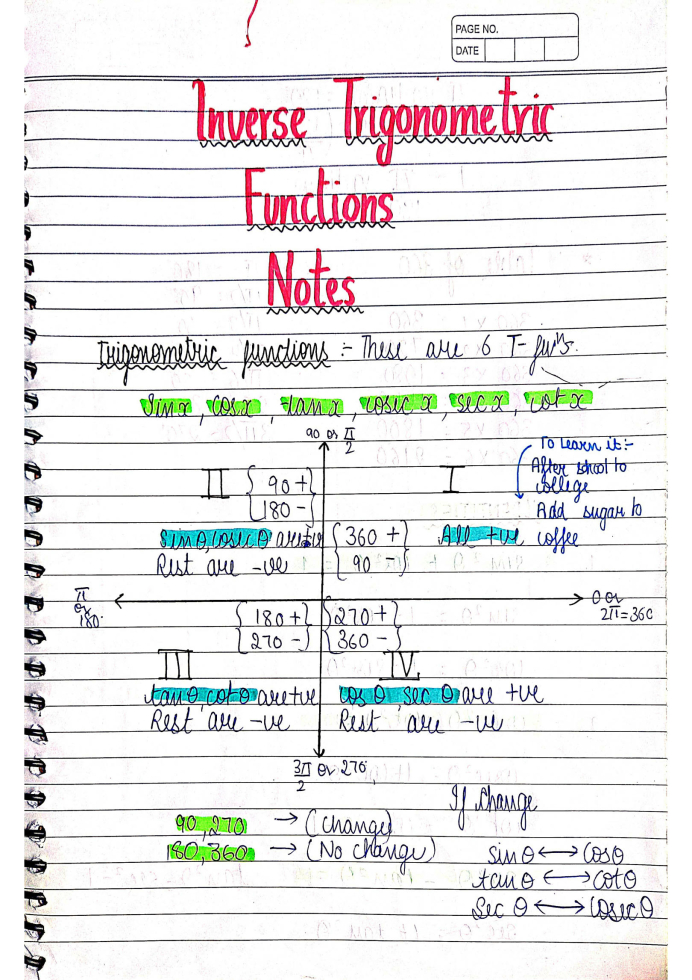 PAGE NO.
DATE
Inverse Trigonometric
Functions
Notes
Trigonometric functions :- These are 6 T-fun's.
Sin x, cos x, tan x, cosec x, sec x, cot x
90 or π/2
To learn it :-
After shool to
college
Add sugar to
coffee
II { 90+ }
{ 180 - }
I
Sinθ, cosec θ are +ve
Rest are -ve
{ 360 + }
{ 90 - }
All +ve
π or 180.
0 or
2π = 360
{ 180 + }
{ 270 - }
{ 270 + }
{ 360 - }
III
tan θ, cot θ are +ve
Rest are -ve
IV
cos θ, sec θ are +ve
Rest are -ve
3π/2 or 270
If Change
90, 270 → (Change)
180, 360 → (No change)
sin θ ↔ Cosθ
tan θ ↔ Cotθ
Sec θ ↔ Cosec θ